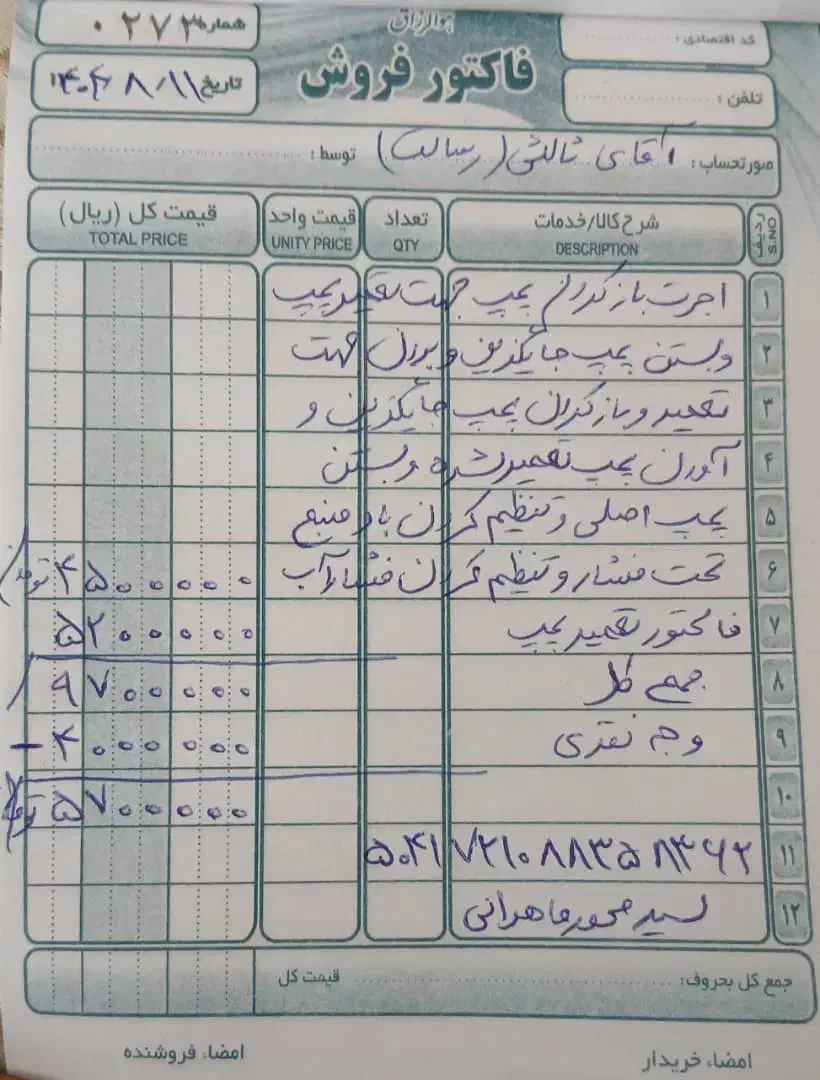 هوالرزاق
فاکتور فروش
شماره: ۰۲۷۳
تاریخ ۱۴۰۴/۸/۱۱
کد اقتصادی:
تلفن:
صورتحساب: آقای ثالثی (رسالت) توسط:
ردیف S.NO شرح کالا/خدمات DESCRIPTION تعداد QTY قیمت واحد UNITY PRICE قیمت کل (ریال) TOTAL PRICE
۱ اجرت باز کردن پمپ جهت تعمیر پمپ
۲ و بستن پمپ جایگزین و بردن جهت
۳ تعمیر و باز کردن پمپ جایگزین و
۴ آوردن پمپ تعمیر شده و بستن
۵ پمپ اصلی و تنظیم کردن باد منبع
۶ تحت فشار و تنظیم کردن فشار آب ۴۵۰۰۰۰۰۰ تومان
۷ فاکتور تعمیر پمپ ۵۲۰۰۰۰۰
۸ جمع کل ۹۷۰۰۰۰۰
۹ وجه نقدی ۴۰۰۰۰۰۰ -
۱۰ ۵۷۰۰۰۰۰ تومان
۱۱ ۵۰۴۱ ۷۲۱۰ ۸۸۳۵ ۸۳۶۲
۱۲ سید
جمع کل بحروف: قیمت کل
امضاء خریدار امضاء فروشنده